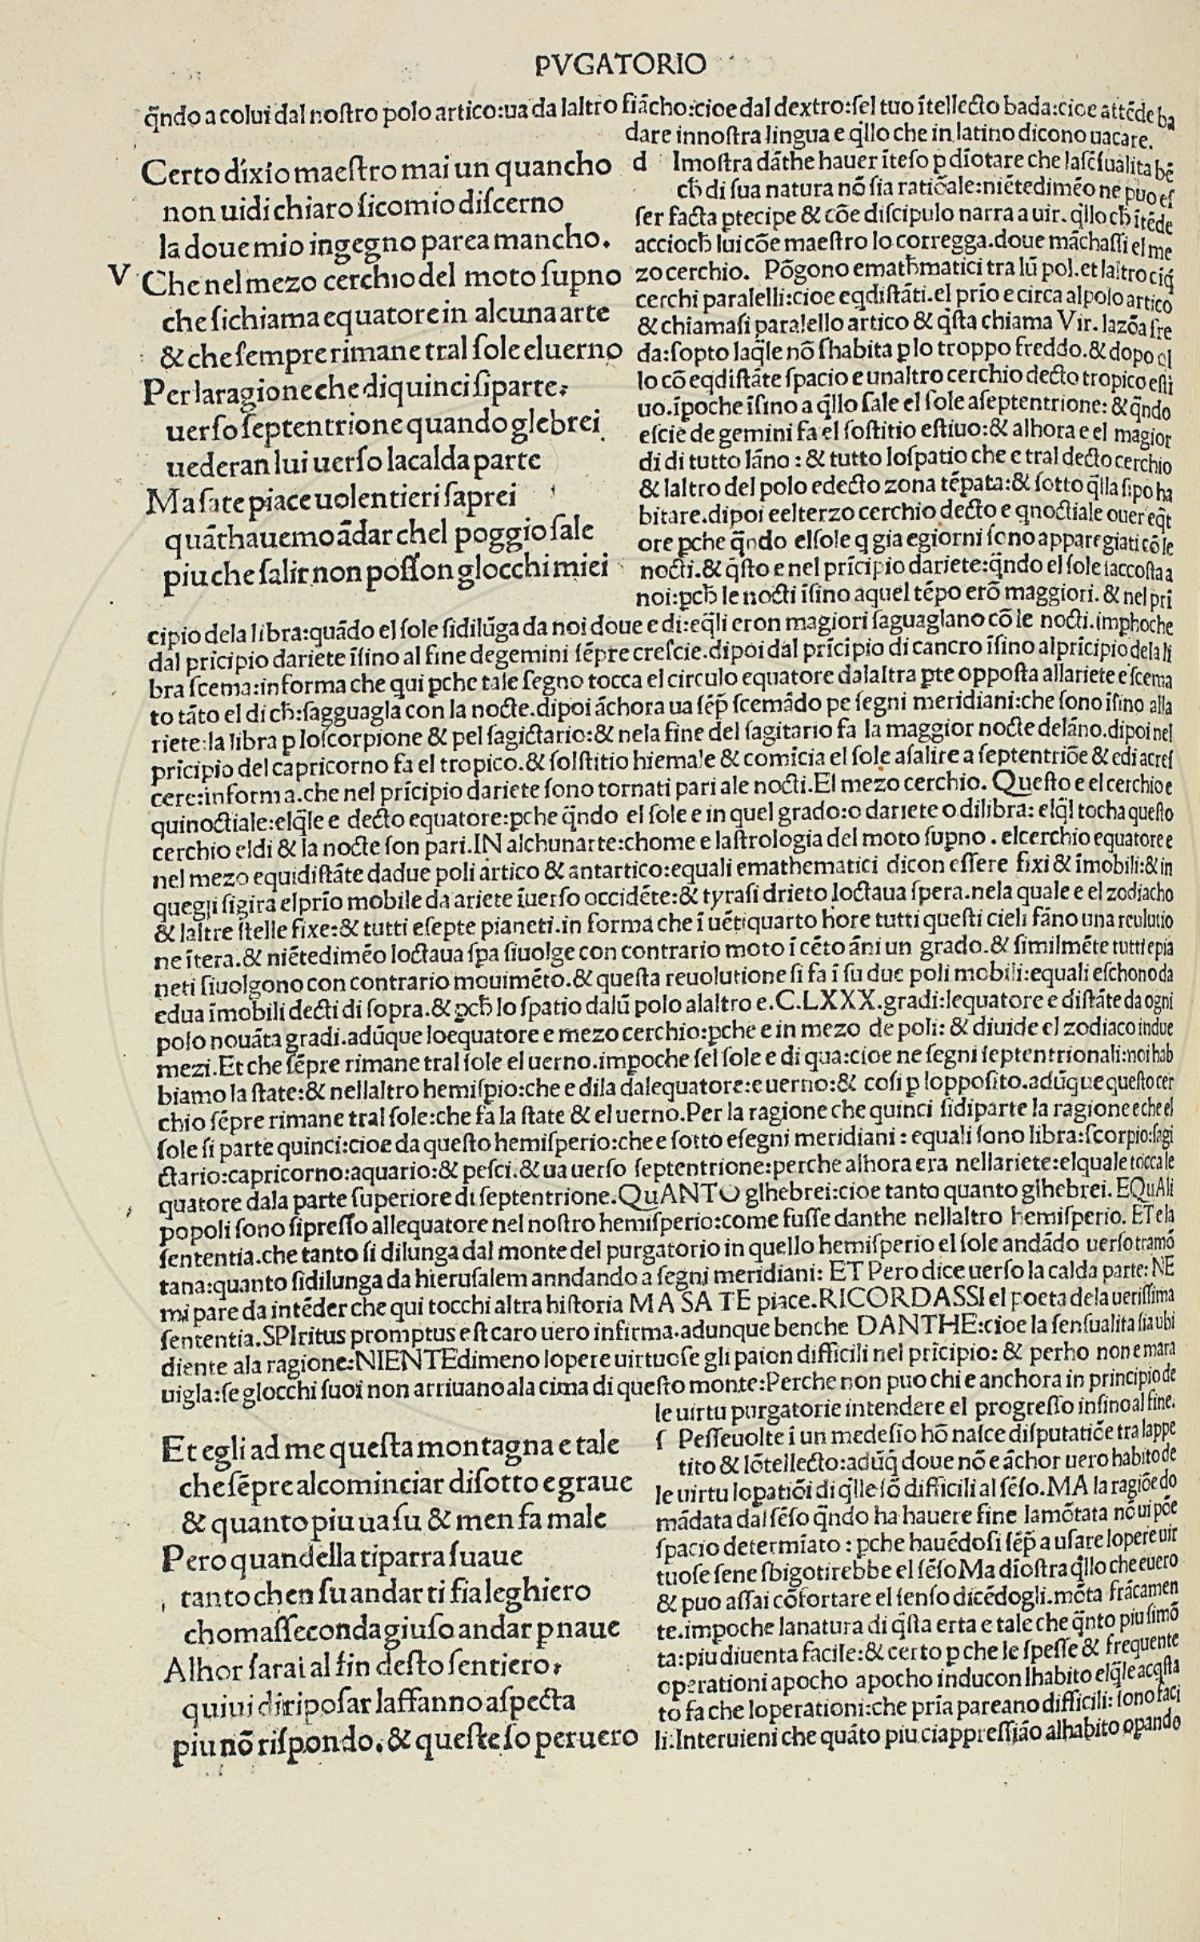 PVGATORIO
q̃ndo a colui dal nostro polo artico:ua da laltro fiãcho:cioe dal dextro:sel tuo ĩtellecto bada:cioe attẽde ba
dare in nostra lingua e q̃llo che in latino dicono uacare.
Certo dixio maestro mai un quancho
non uidi chiaro sicomio discerno
la doue mio ingegno parea mancho.
V Che nel mezo cerchio del moto supno
che si chiama equatore in alcuna arte
& che sempre rimane tral sole el uerno
Per la ragione che di quinci si parte:
uerso septentrione quando glebrei
uederan lui uerso la calda parte
Ma sa te piace uolentieri saprei
quãthauemo ãdar chel poggio sale
piu che salir non posson glocchi miei
d Imostra dãthe hauer ĩteso p dĩotare che la sẽsualita bẽ
ch̃ di sua natura nõ sia ratiõale:niẽtedimẽo ne puo es
ser facta ptecipe & cõe discipulo narra a uir. q̃llo ch̃ ĩtẽde
accioch̃ lui cõe maestro lo corregga.doue mãchassi el me
zo cerchio. Põgono emath̃matici tra lũ pol.et laltro ciq̃
cerchi paralelli:cioe eq̃distãti.el prĩo e circa al polo artico
& chiamasi paralello artico & q̃sta chiama Vir. la zõa fre
da:sopto laq̃le nõ shabita p lo troppo freddo.& dopo el
lo cõ eq̃distãte spacio e unaltro cerchio decto tropico esti
uo.ĩpoche ĩsino a q̃llo sale el sole a septentrione: & q̃ndo
escie de gemini fa el sostitio estiuo:& alhora e el magior
di di tutto lãno : & tutto lo spatio che e tral decto cerchio
& laltro del polo e decto zona tẽpata:& sotto q̃lla si po ha
bitare.dipoi e el terzo cerchio decto e qnoctiale ouer eq̃t
ore pche q̃ndo el sole q gia e giorni sono appare giati cõ le
nocti.& q̃sto e nel prĩcipio dariete:q̃ndo el sole iaccosta a
noi:pch̃ le nocti ĩsino a quel tẽpo erõ maggiori. & nel pri
cipio de la libra:quãdo el sole si dilũga da noi doue e di:eq̃li eron magiori saguaglano cõ le nocti.imphoche
dal prĩcipio dariete ĩsino al fine de gemini sẽpre crescie.dipoi dal prĩcipio di cancro ĩsino al prĩcipio de la li
bra scema:in forma che qui pche tale segno tocca el circulo equatore da laltra pte opposta allariete e scema
to tãto el di ch̃:sagguagla con la nocte.dipoi ãchora ua sẽp̃ scemãdo pe segni meridiani:che sono ĩsino alla
riete:la libra p lo scorpione & pel sagictario:& ne la fine del sagitario fa la maggior nocte de lãno.dipoi nel
prĩcipio del capricorno fa el tropico.& solstitio hiemale & comĩcia el sole a salire a septentriõe & e di acres
cere:in forma.che nel prĩcipio dariete sono tornati pari ale nocti.El mezo cerchio. Questo e el cerchio e
quinoctiale:elq̃le e decto equatore:pche q̃ndo el sole e in quel grado:o dariete o di libra: elq̃l tocha questo
cerchio el di & la nocte son pari.IN alchun arte:chome e lastrologia del moto supno . el cerchio equatore e
nel mezo equidistãte da due poli artico & antartico:e quali e mathematici dicon essere fixi & ĩmobili:& in
quegli si gira el prĩo mobile da ariete ĩuerso occidẽte:& tyrasi drieto loctaua spera.ne la quale e el zodiacho
& laltre stelle fixe:& tutti e septe pianeti.in forma che ĩ uẽtiquarto hore tutti questi cieli fãno una reulutio
ne ĩtera.& niẽtedimẽo loctaua spa siuolge con contrario moto ĩ cẽto ãni un grado.& similmẽte tutti e pia
neti siuolgono con contrario mouimẽto.& questa reuolutione si fa ĩ su due poli mobili:e quali eschono da
e dua ĩmobili decti di sopra.& pch̃ lo spatio da lũ polo alaltro e.C.LXXX.gradi:lequatore e distãte da ogni
polo nouãta gradi.adũque lo equatore e mezo cerchio:pche e in mezo de poli: & diuide el zodiaco in due
mezi.Et che sẽpre rimane tral sole el uerno.impoche sel sole e di qua:cioe ne segni septentrionali:noi hab
biamo la state:& nellaltro hemispio:che e di la dalequatore:e uerno:& cosi p lopposito.adũque questo cer
chio sẽpre rimane tral sole:che fa la state & el uerno.Per la ragione che quinci sidiparte la ragione e che el
sole si parte quinci:cioe da questo hemisperio:che e sotto e segni meridiani : e quali sono libra:scorpio:sagi
ctario:capricorno:aquario:& pesci.& ua uerso septentrione:perche alhora era nellariete:elquale tocca le
quatore dala parte superiore di septentrione.QuANTO glhebrei:cioe tanto quanto glhebrei. EQuAli
popoli sono si presso allequatore nel nostro hemisperio:come fusse danthe nellaltro hemisperio. ET e la
sententia.che tanto si dilunga dal monte del purgatorio in quello hemisperio el sole andãdo uerso tramõ
tana:quanto sidilunga da hierusalem anndando a segni meridiani: ET Pero dice uerso la calda parte: NE
mi pare da intẽder che qui tocchi altra historia MA SA TE piace.RICORDASSI el poeta de la uerissima
sententia.SPIritus promptus est caro uero infirma.adunque benche DANTHE:cioe la sensualita sia ubi
diente ala ragione:NIENTEdimeno lopere uirtuose gli paion difficili nel prĩcipio: & perho non e mara
uigla:se glocchi suoi non arriuano ala cima di questo monte:Perche non puo chi e anchora in principio de
le uirtu purgatorie intendere el progresso insino al fine.
Et egli ad me questa montagna e tale
che sẽpre al cominciar di sotto e graue
& quanto piu ua su & men fa male
Pero quandella ti parra suaue
tanto chen su andar ti fia leghiero
chomasseconda giuso andar p naue
Alhor sarai al fin desto sentiero:
quiui di riposar laffanno aspecta
piu nõ rispondo.& queste so per uero
s Pesseuolte ĩ un medesĩo hõ nasce disputatiõe tra lappe
tito & lõtellecto:adũq̃ doue nõ e ãchor uero habito de
le uirtu lopatiõi di q̃lle sõ difficili al sẽso.MA la ragiõe do
mãdata dal sẽso q̃ndo ha hauere fine la mõtata nõ ui põe
spacio determĩato : pche hauẽdosi sẽp̃ a usare lopere uir
tuose sene sbigotirebbe el sẽso Ma dĩostra q̃llo che e uero
& puo assai cõfortare el senso dicẽdogli.mõta frãcamen
te.impoche la natura di q̃sta erta e tale che q̃nto piu si mõ
ta:piu diuenta facile:& certo p che le spesse & frequente
operationi apocho apocho inducon lhabito elq̃le acq̃sta
to fa che loperationi:che prĩa pareano difficili: sono faci
li:Interuieni che quãto piu ci appressião alhabito opando